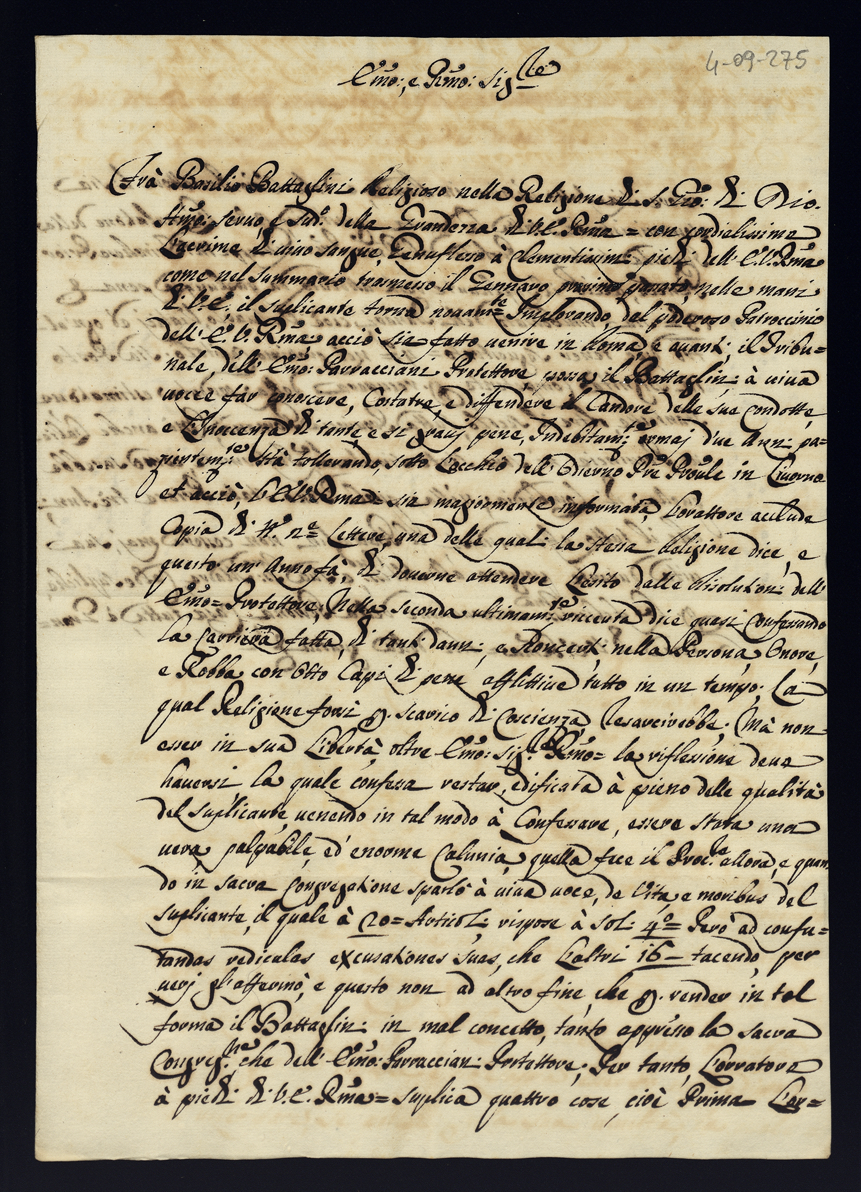 4-09-275
Em̃o: e Rm̃o: Sig:re
Frà Basilio Battaglini Religioso nella Religione di S. Gio: di Dio.
Hum̃o: servo, e Sud:o della Grandezza di V.E. Rm̃a = con cordialissime
Lacrime di vivo sangue, genuflesso à clementissimi piedi dell'E.V. Rm̃a
come nel summario trasmesso il Gennaro prossimo passato, nelle mani
di V.E. il suplicante torna novam:te Implorando del poderoso Patroccinio
dell'E.V. Rm̃a acciò sia fatto venire in Roma, e avanti il Tribu=
nale, dell'Em̃o: Parracciani Protettore, possa il Battaglini à viva
voce far conoscere, Costatre, e diffendere il Candore delle sue condotte,
e Innocenza di tante, e si gravi pene, Indebitam:te ormaj due Anni pa=
zientem:te stà tollerando, sotto L'occhio dell'Odierno Pre Prov:le in Livorno
et acciò, V.E. Rm̃a = sia magiormente informata, L'orattore acclude
Copia di N:o n:o 2 Lettere, una delle quali la stessa Religione dice, e
questo un' Anno fà, di doverne attendere L'esito delle Risolutioni dell'
Em̃o = Protettore, Nella seconda ultimam:te ricevuta dice quasi Confessando
la Carriera fatta, di tanti danni, e Sconcerti nella Persona, Onore,
e Robba con Otto Capi di pene afflittive tutto in un tempo; La
qual Religione forsi p. scarico di Coscienza Resarcirebbe; Mà non
esser in sua Libertà, oltre Em̃o: Sig:re Rm̃o = la riflessione deve
haversi la quale confessa restar, edificata à pieno delle qualità
del suplicante, venendo in tal modo à Confessare, essere stata una
vera, palpabile, ed' enorme Calunia, quella fece il Proc:le allora, e quan=
do in sacra Congregatione sparlò à viva voce, de Vita e moribus del
suplicante, il quale à 20 = Articoli rispose à soli 4:o = Però ad confu=
tandas rediculas excusationes suas, che L'altri 16 = tacendo, per
veri gl'affermò, e questo non ad altro fine, che p. render in tal
forma il Battaglini in mal concetto, tanto appresso la sacra
Congreg:ne che dell'Em̃o: Parracciani Protettore; Per tanto, L'orratore
à piedi di V.E. Rm̃a = suplica quattro cose, cioè Prima L'or=